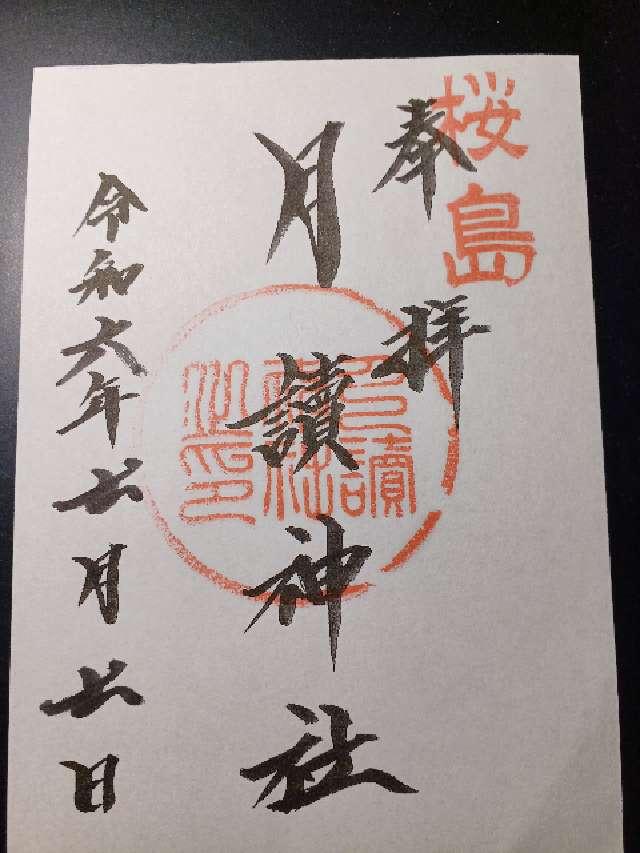 桜島
奉拝
月讀神社
月讀神社之印
令和六年七月七日